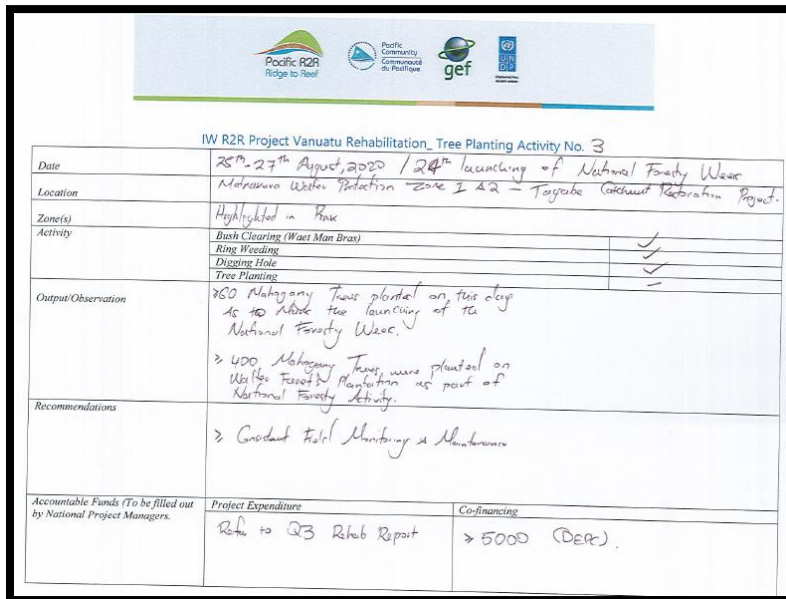 Pacific R2R
Ridge to Reef
Pacific
Community
Communauté
du Pacifique
gef
U N
D P
IW R2R Project Vanuatu Rehabilitation_ Tree Planting Activity No. 3
Date 25th-27th August, 2020 / 24th launching of National Forestry Week
Location Water Protection Zone 1 &2 - Tagabe Catchment Restoration Project.
Zone(s) Highlighted in Pink
Activity Bush Clearing (Waet Man Bras) ✓
Ring Weeding ✓
Digging Hole ✓
Tree Planting –
Output/Observation >60 Mahogany Trees planted on this day
As to Mark the launching of the
National Forestry Week.
> 400 Mahogany Trees were planted on
Plantation as part of
National Forestry Activity.
Recommendations
> Consistant Field Monitoring & Maintenance
Accountable Funds (To be filled out
by National Project Managers.
Project Expenditure Co-financing
Refer to Q3 Rehab Report > 5000 (DEPC).